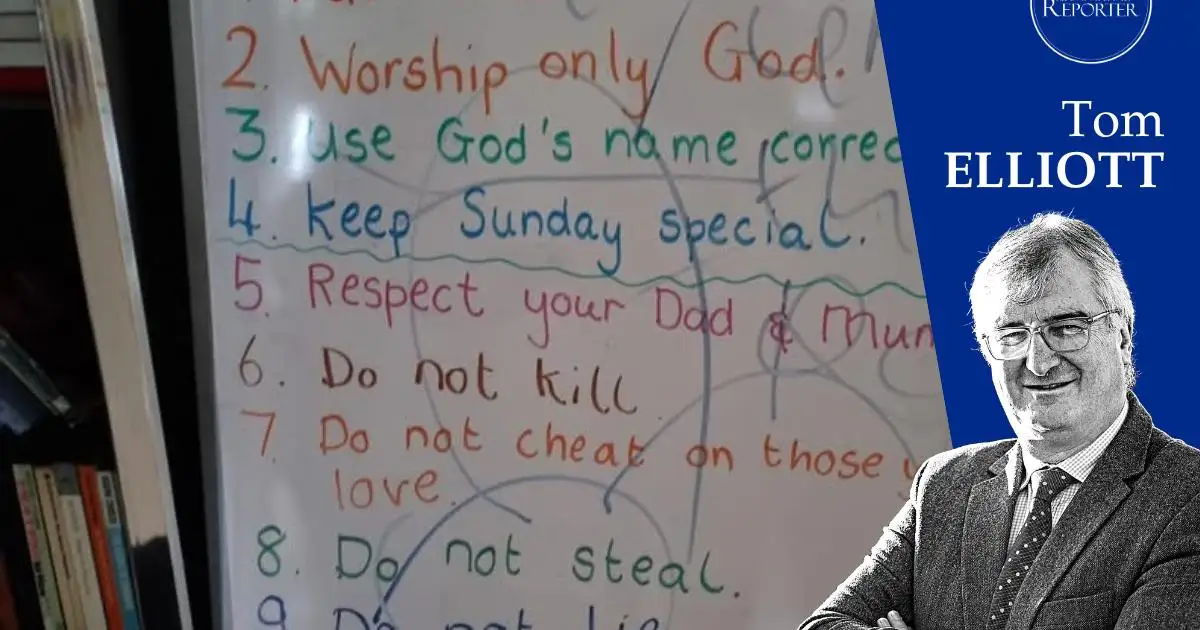 2. Worship only God.
3. Use God's name correc
4. Keep Sunday special.
5. Respect your Dad & Mum
6. Do not kill.
7. Do not cheat on those y
love.
8. Do not steal.
9. Do not lie
REPORTER
Tom
ELLIOTT